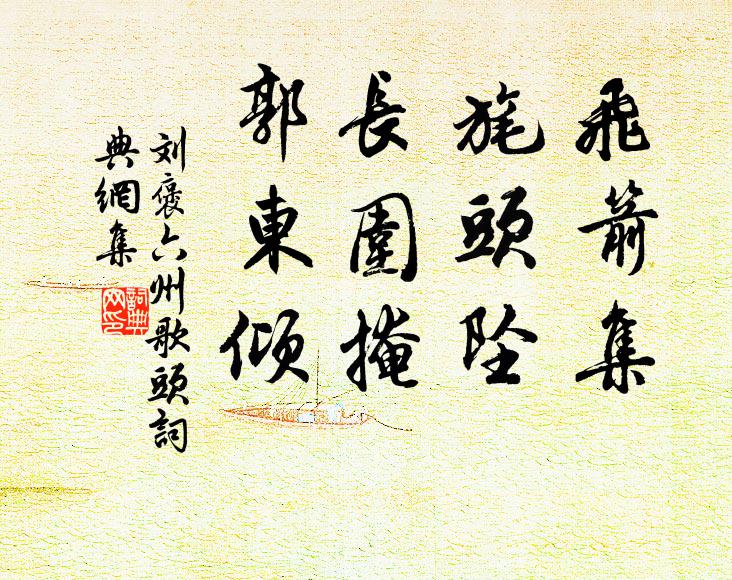 飛箭集
旄頭墜
長圍掩
郭東傾
刘褒六州歌頭詞
典網集
詞典
网印